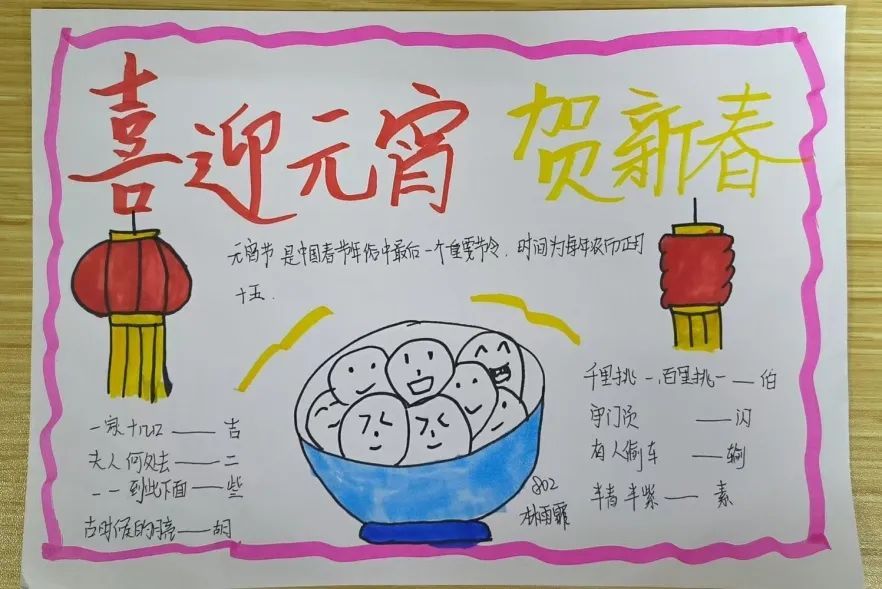 喜迎元宵 贺新春
元宵节 是中国春节年俗中最后一个重要节令,时间为每年农历正月
十五.
一家十几口——吉
夫人何处去——二
一一到此下面——些
古时候的月亮——胡
千里挑一,百里挑一——伯
守门员——闪
有人偷车——输
半青半紫——素
802
林雨霏